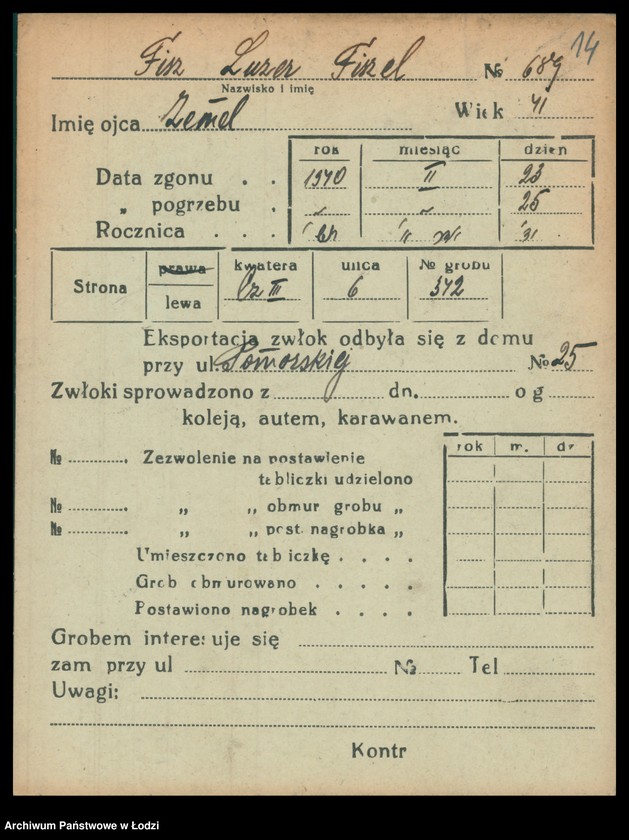 14
Fisz Luzer Fiszel № 689
Nazwisko i imię
Imię ojca Zemel Wiek 41
rok miesiąc dzień
Data zgonu . . 1940 II 23
„ pogrzebu . „ „ 25
Rocznica . . .
Strona prawa kwatera ulica № grobu
lewa III 6 342
Eksportacja zwłok odbyła się z domu
przy ul. Pomorskiej № 25
Zwłoki sprowadzono z dn. o g
koleją, autem, karawanem.
rok m. dz
№ Zezwolenie na postawienie
tabliczki udzielono
№ „ „ obmur grobu „
№ „ „ post. nagrobka „
Umieszczono tabliczkę . . . .
Grób obmurowano . . . .
Postawiono nagrobek . . . .
Grobem interesuje się
zam przy ul № Tel
Uwagi:
Kontr
Archiwum Państwowe w Łodzi